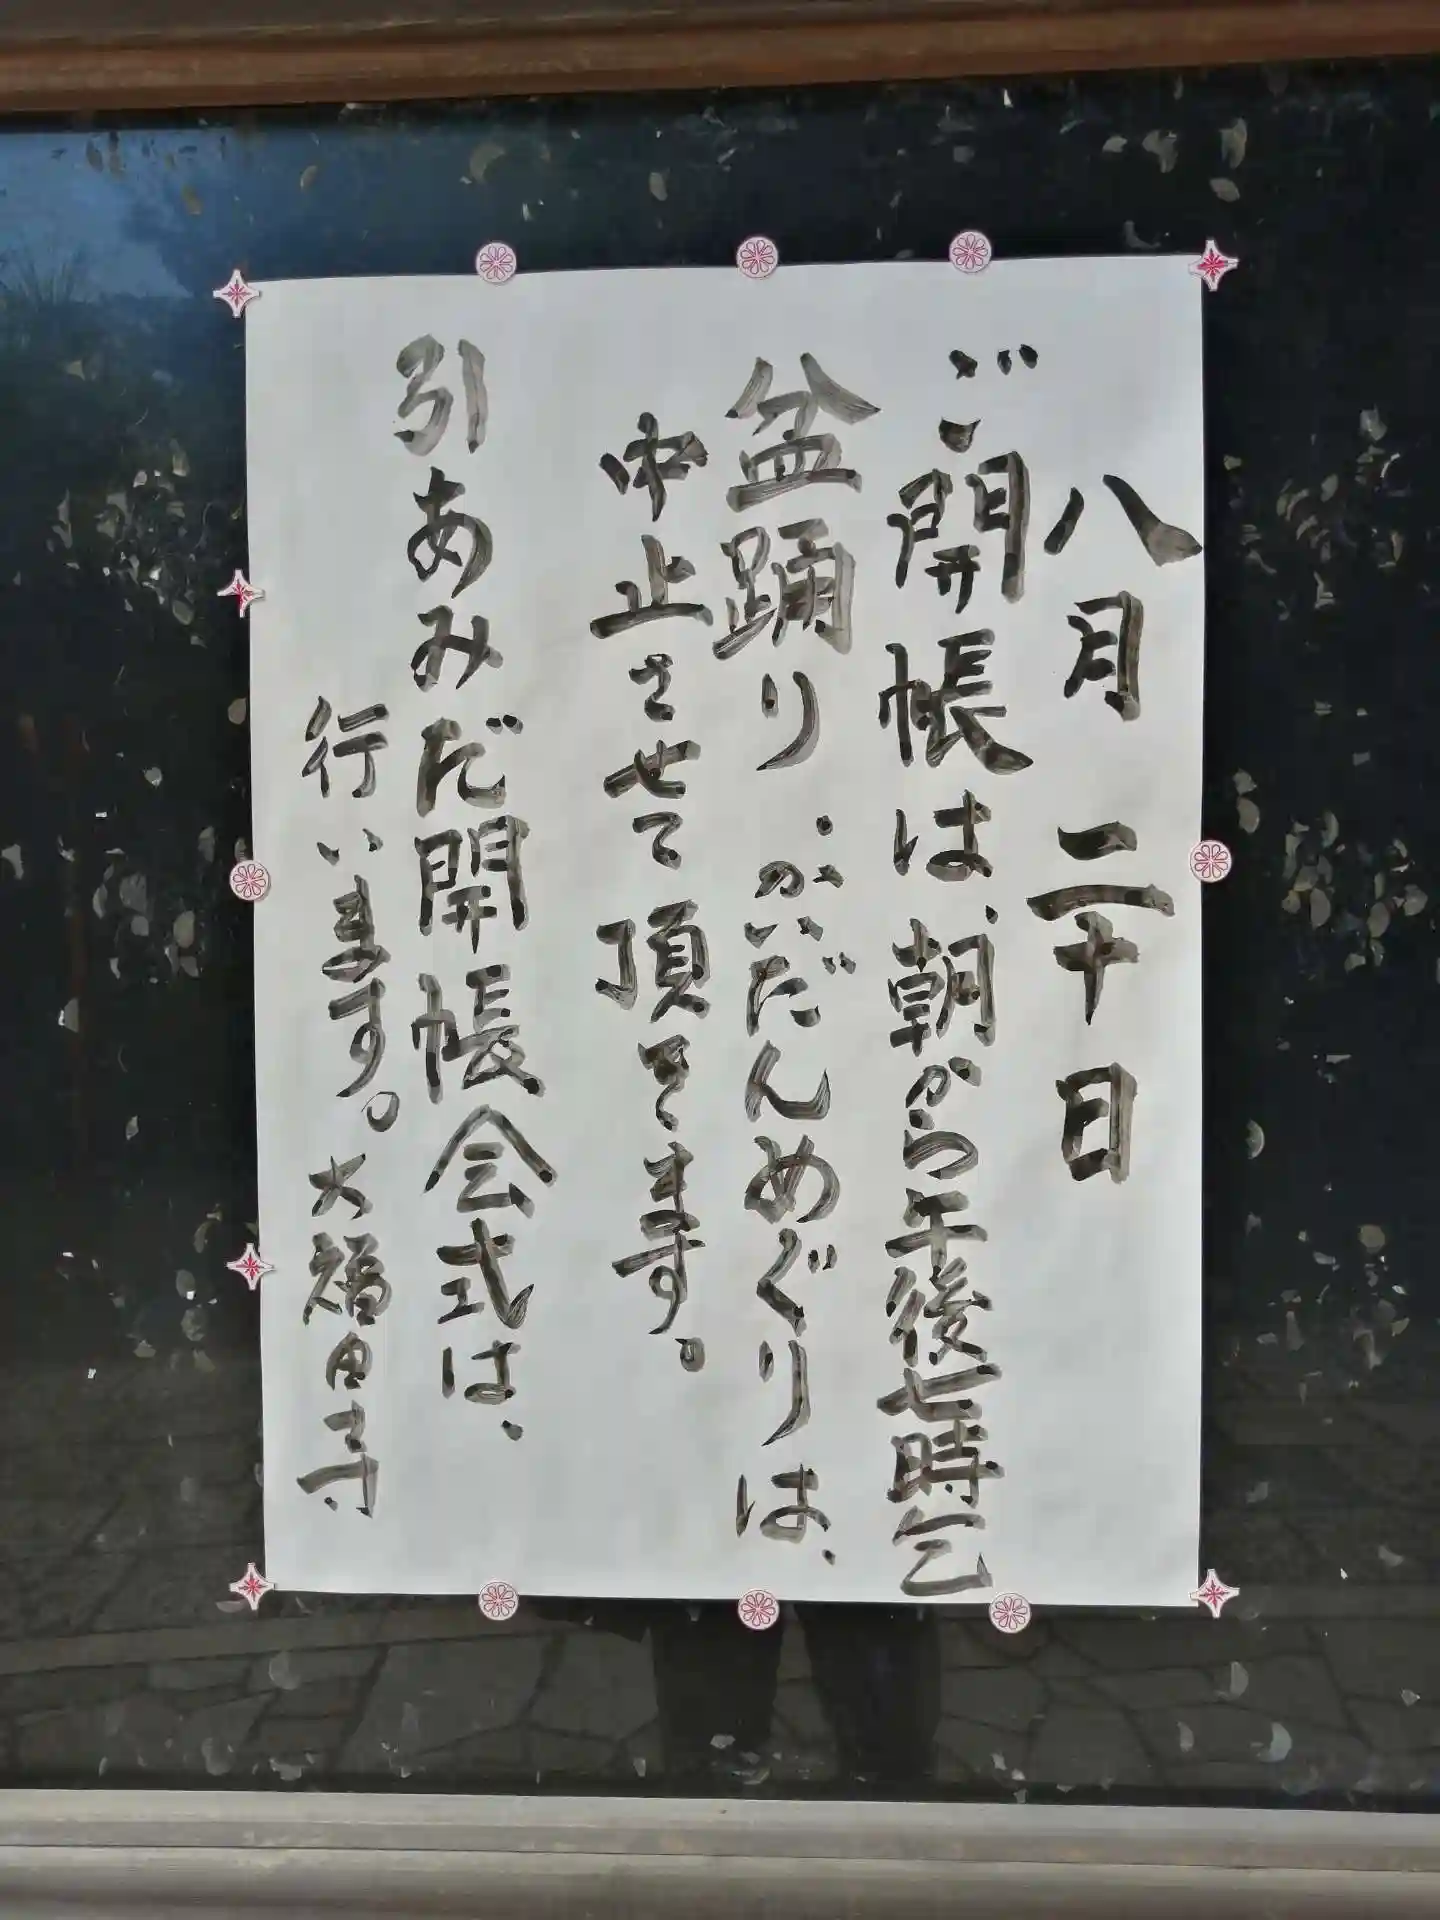 八月二十日
ご開帳は、朝から午後七時迄
盆踊り・かいだんめぐりは、
中止させて頂きます。
引あみだ開帳会式は、
行います。大福田寺